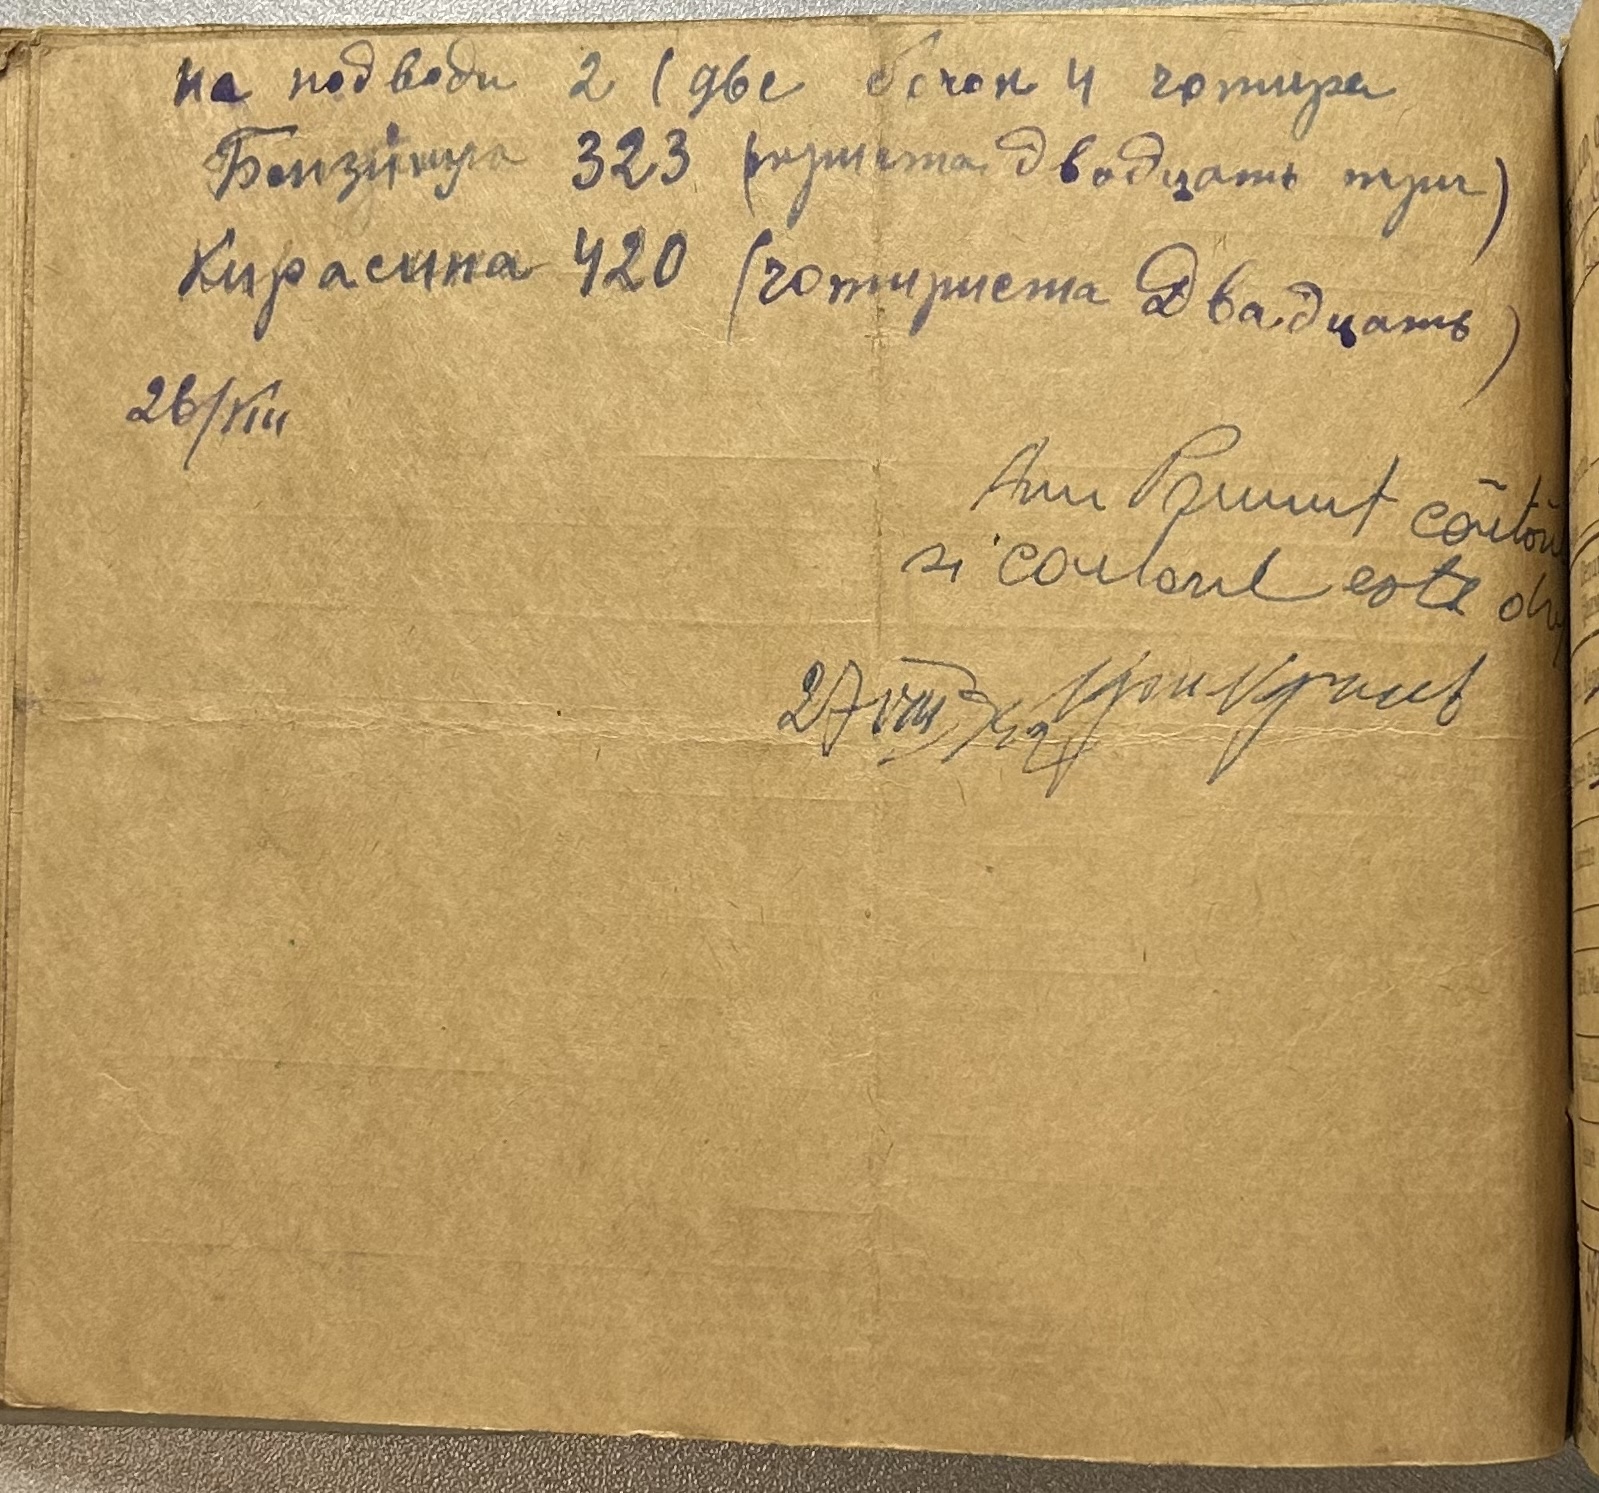 на подводи 2 (две бочок 4 чотире
Бензину 323 (триста двадцать три)
Кирасина 420 (чотириста Двадцать)
26/VIII
Am Primit
si este
27 VIII